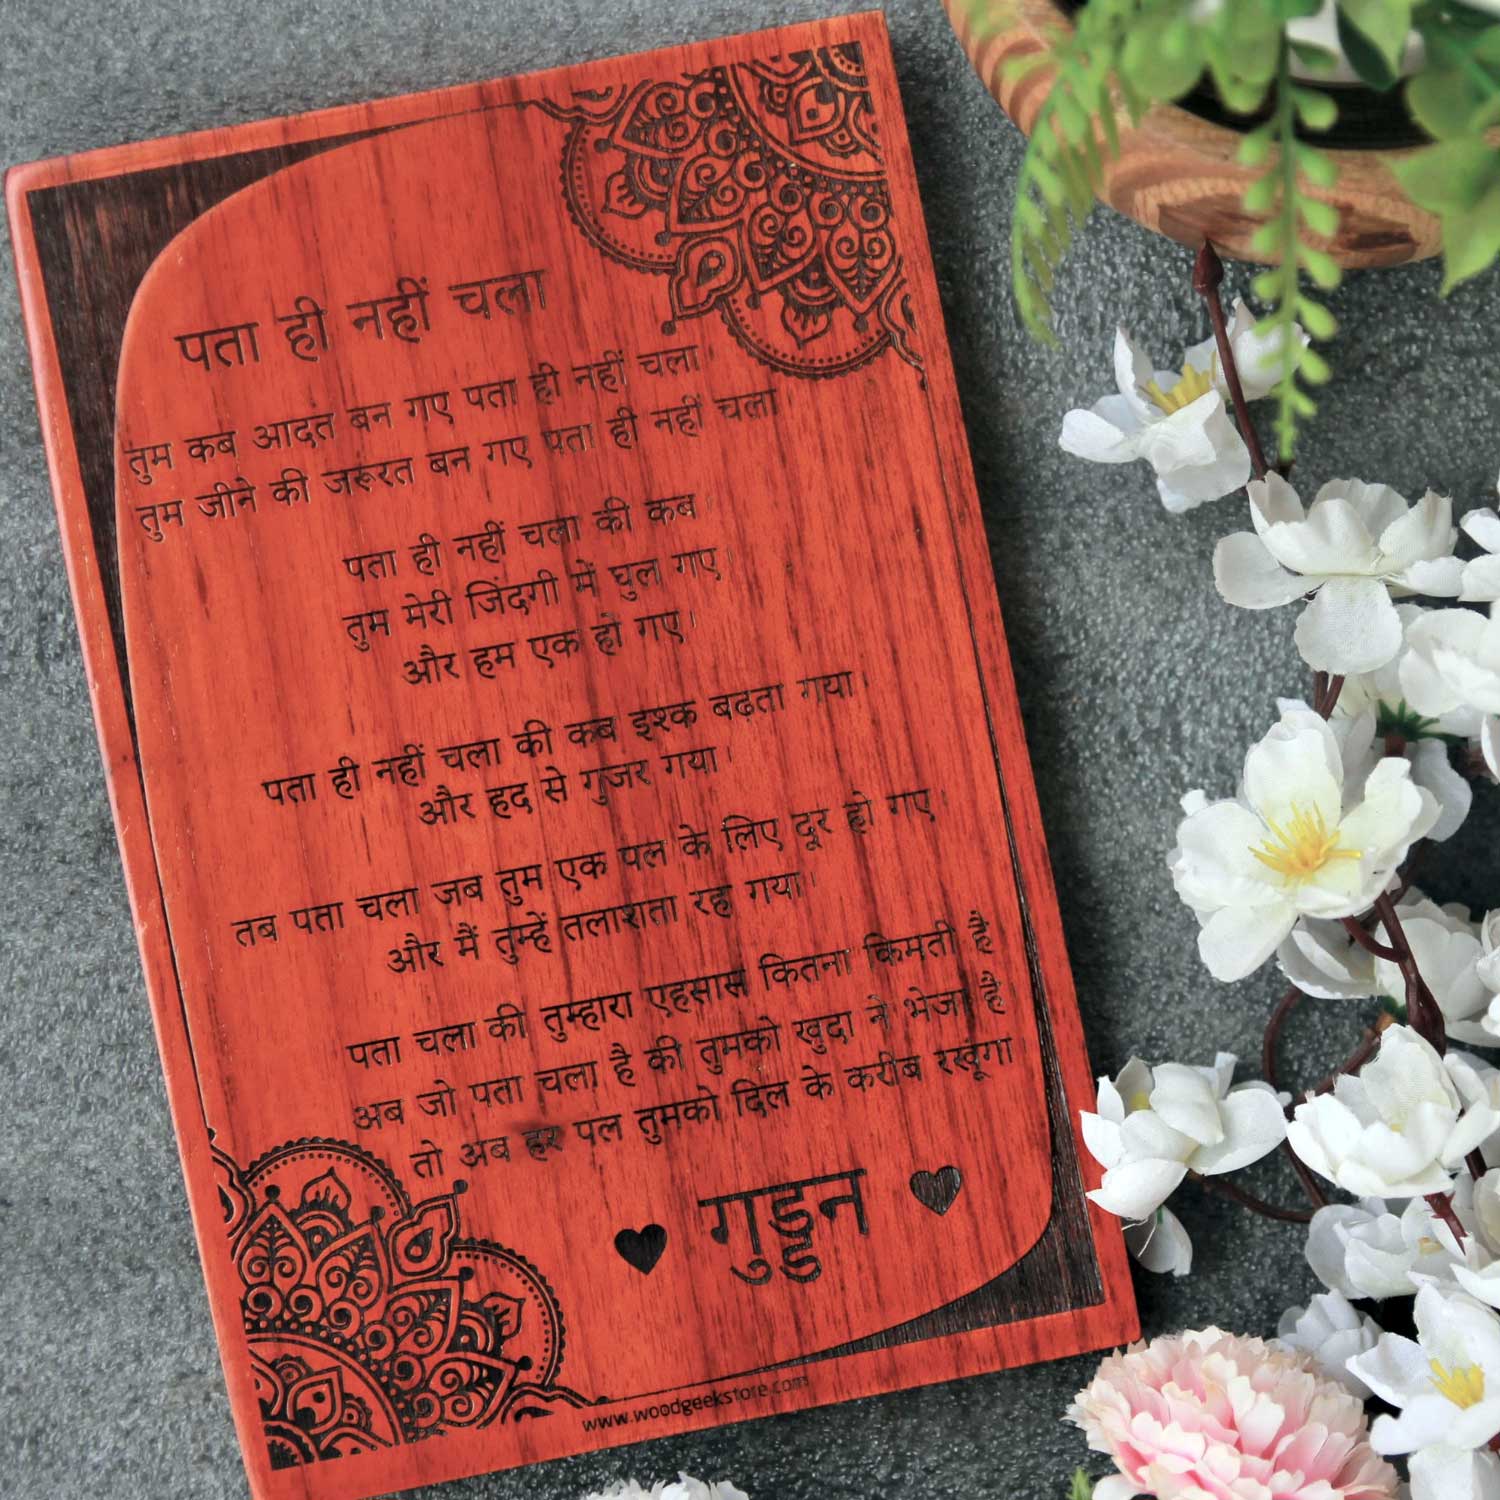 पता ही नहीं चला
तुम कब आदत बन गए पता ही नहीं चला।
तुम जीने की जरूरत बन गए पता ही नहीं चला।
पता ही नहीं चला की कब।
तुम मेरी जिंदगी में घुल गए।
और हम एक हो गए।
पता ही नहीं चला की कब इश्क बढता गया।
और हद से गुजर गया।
तब पता चला जब तुम एक पल के लिए दूर हो गए।
और मैं तुम्हें तलाशता रह गया।
पता चला की तुम्हारा एहसास कितना किमती है।
अब जो पता चला है की तुमको खुदा ने भेजा है।
तो अब हर पल तुमको दिल के करीब रखूंगा।
गुड्डन
www.woodgeekstore.com